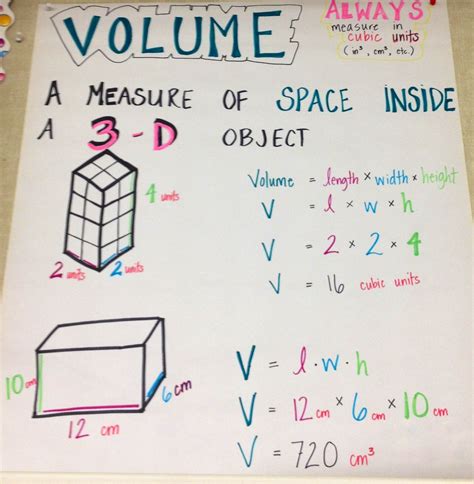 VOLUME
ALWAYS
measure in
cubic units
(in³, cm³, etc.)
A MEASURE OF SPACE INSIDE
A 3-D OBJECT
4 units
2 units
2 units
Volume = length × width × height
V = l × w × h
V = 2 × 2 × 4
V = 16 cubic units
10 cm
6 cm
12 cm
V = l · w · h
V = 12 cm × 6 cm × 10 cm
V = 720 cm³